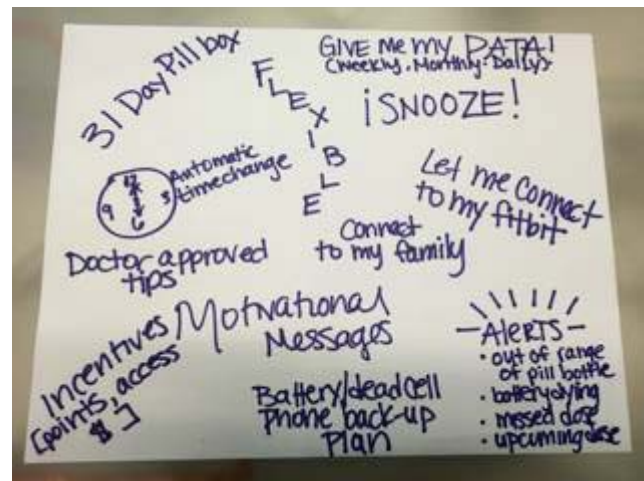 31 Day Pill box
FLEXIBLE
GIVE Me MY DATA!
(Weekly, Monthly, Daily)
¡SNOOZE!
12
3
6
9
Automatic
time change
Let me connect
to my fitbit
Connect
to my family
Doctor approved
tips
Motvational
Messages
Incentives
[points, access
$]
Battery/dead cell
Phone back-up
Plan
-ALERTS-
• out of range
of pill bottle
• battery dying
• missed dose
• upcuming dose